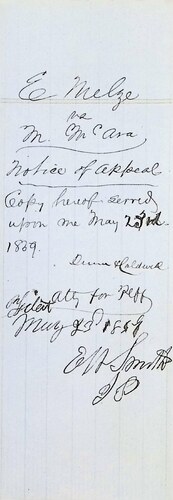 E. Melze
vs
M. McCara
Notice of Appeal
Copy hereof served
upon me May 23rd
1859.
Dunn & Caldwell
Atty for Peff
Filed
May 23d 1859
E H Smith
JP